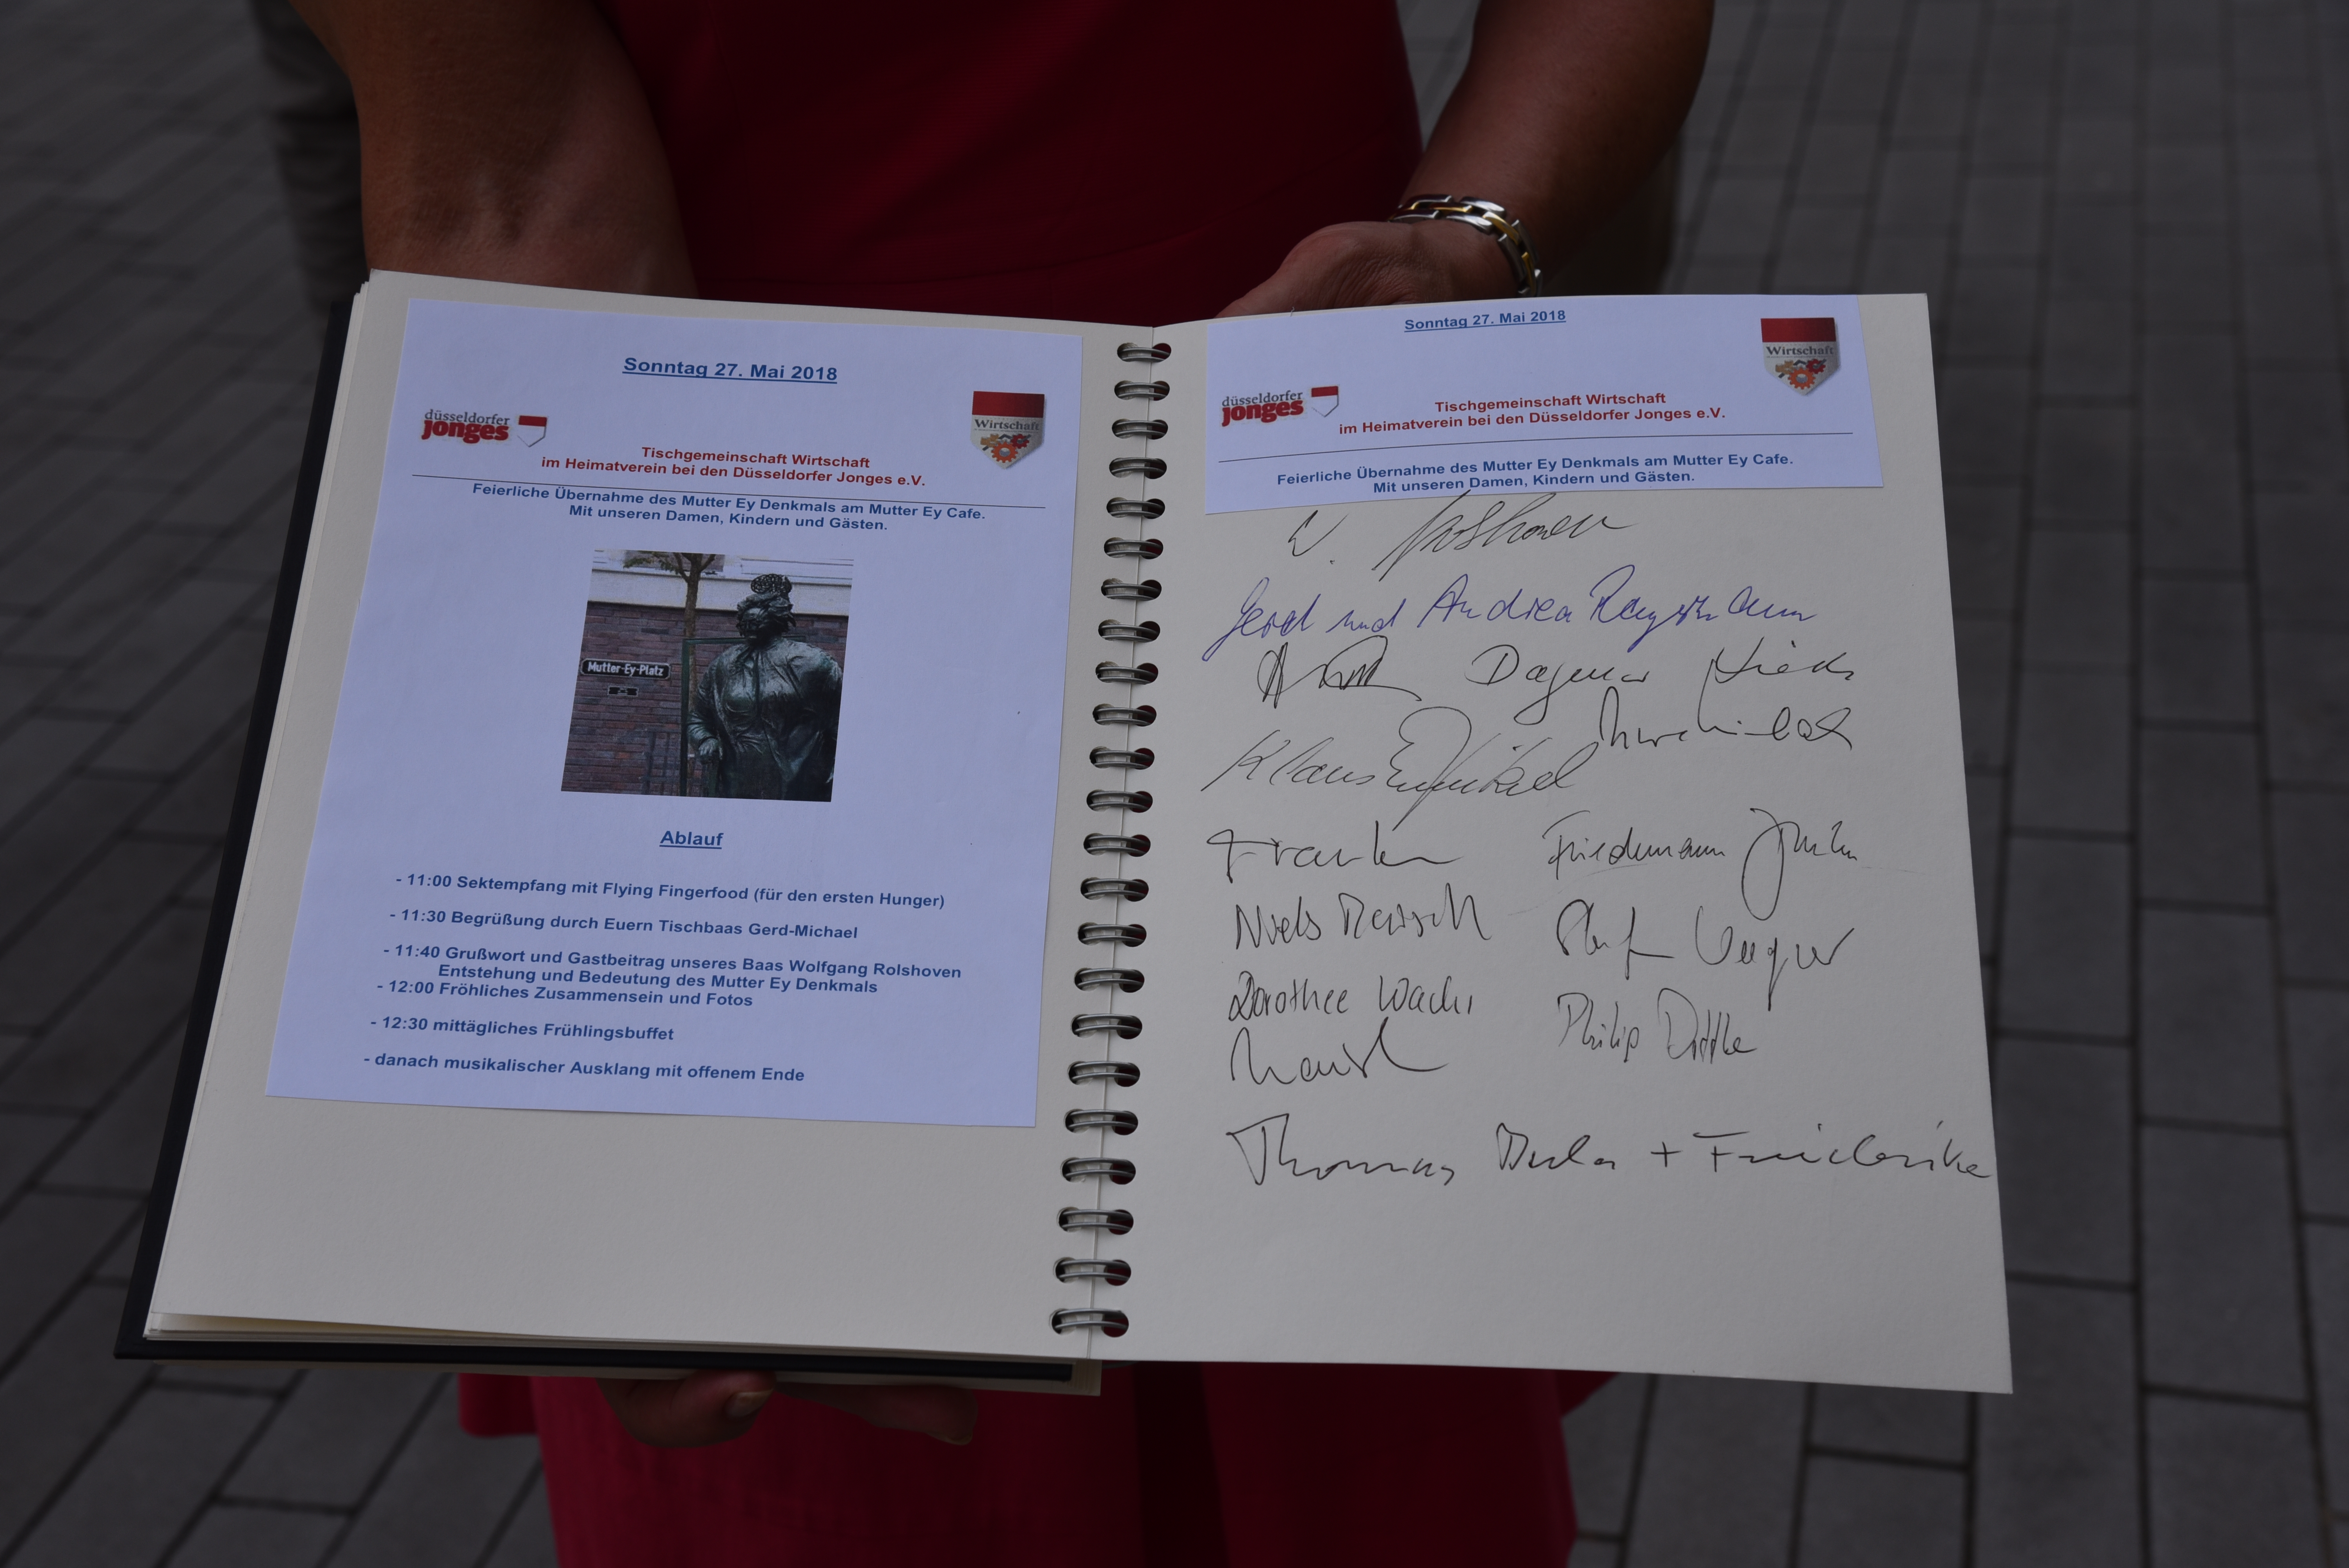 Sonntag 27. Mai 2018
düsseldorfer
jonges
Wirtschaft
Tischgemeinschaft Wirtschaft
im Heimatverein bei den Düsseldorfer Jonges e.V.
Feierliche Übernahme des Mutter Ey Denkmals am Mutter Ey Cafe.
Mit unseren Damen, Kindern und Gästen.
Mutter-Ey-Platz
Ablauf
- 11:00 Sektempfang mit Flying Fingerfood (für den ersten Hunger)
- 11:30 Begrüßung durch Euern Tischbaas Gerd-Michael
- 11:40 Grußwort und Gastbeitrag unseres Baas Wolfgang Rolshoven
Entstehung und Bedeutung des Mutter Ey Denkmals
- 12:00 Fröhliches Zusammensein und Fotos
- 12:30 mittägliches Frühlingsbuffet
- danach musikalischer Ausklang mit offenem Ende
Sonntag 27. Mai 2018
Wirtschaft
düsseldorfer
jonges
Tischgemeinschaft Wirtschaft
im Heimatverein bei den Düsseldorfer Jonges e.V.
Feierliche Übernahme des Mutter Ey Denkmals am Mutter Ey Cafe.
Mit unseren Damen, Kindern und Gästen.
W. Rolshoven
Gerd und Andrea
Dagmar
Klaus
Friedemann
Niels
Dorothee
Philip
Thomas + Friederike